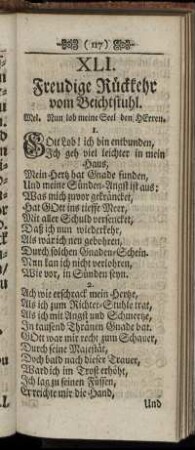 ( 117 )
XLI.
Freudige Rückkehr
vom Beichtstuhl.
Mel. Nun lob meine Seel den HErren.
1.
GOtt Lob! ich bin entbunden,
Ich geh viel leichter in mein
Haus,
Mein Hertz hat Gnade funden,
Und meine Sünden-Angst ist aus:
Was mich zuvor gekräncket,
Hat GOtt ins tieffe Meer,
Mit aller Schuld versencket,
Daß ich nun wiederkehr,
Als wär ich neu gebohren,
Durch solchen Gnaden-Schein.
Nun kan ich nicht verlohren,
Wie vor, in Sünden seyn.
2.
Ach wie erschrack mein Hertze,
Als ich zum Richter-Stuhle trat,
Als ich mit Angst und Schmertze,
In tausend Thränen Gnade bat.
GOtt war mir recht zum Schauer,
Durch seine Majestät,
Doch bald nach dieser Trauer,
Ward ich im Trost erhöht,
Ich lag zu seinen Füssen,
Er reichte mir die Hand,
Und